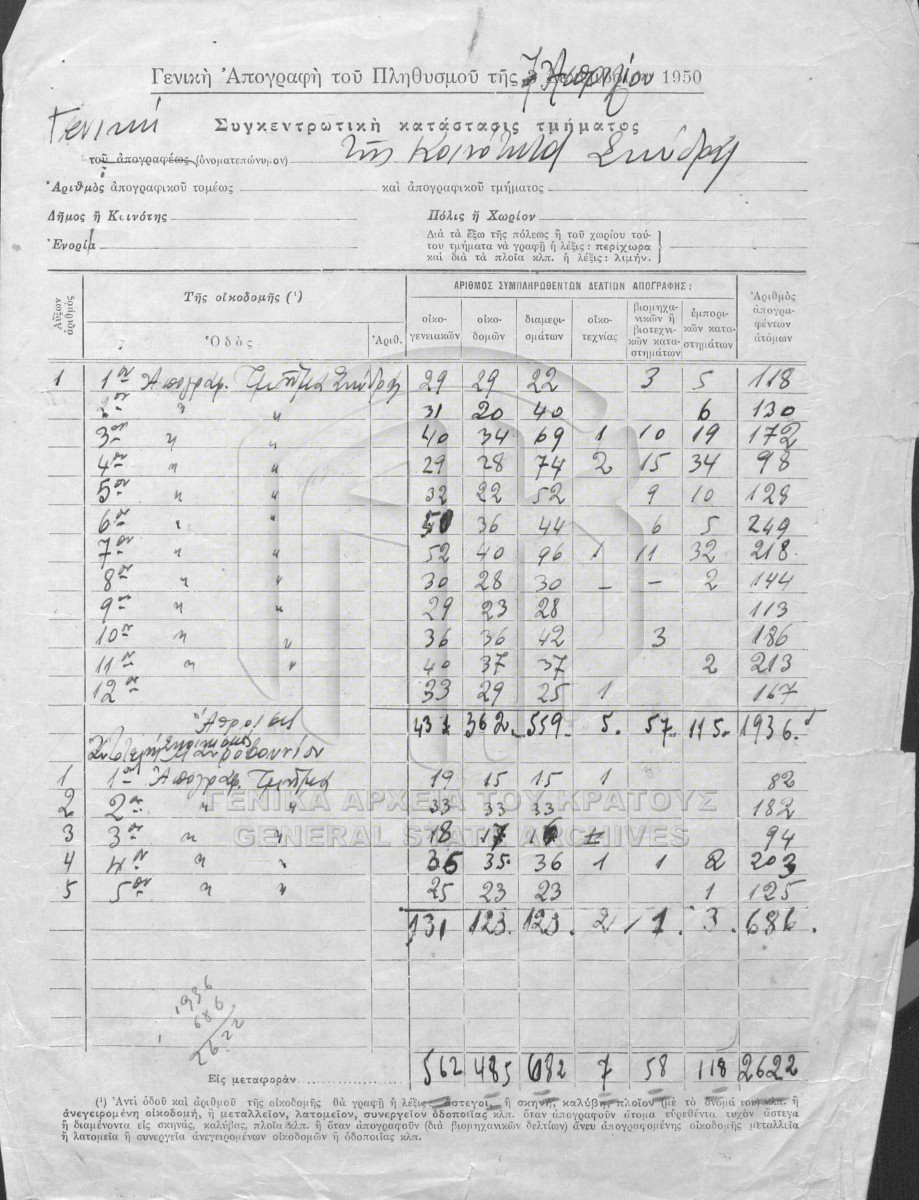 Γενικὴ Ἀπογραφὴ τοῦ Πληθυσμοῦ τῆς 7 Ἀπριλίου 1950
Γενική Συγκεντρωτικὴ κατάστασις τμήματος
τοῦ ἀπογραφέως (ὀνοματεπώνυμον) τῆς Κοινότητα Σκύδρας
Ἀριθμὸς ἀπογραφικοῦ τομέως καὶ ἀπογραφικοῦ τμήματος
Δῆμος ἢ Κοινότης Πόλις ἢ Χωρίον
Ἐνορία
Διὰ τὰ ἔξω τῆς πόλεως ἢ τοῦ χωρίου τού-
του τμήματα νὰ γραφῇ ἡ λέξις: περίχωρα
καὶ διὰ τὰ πλοῖα κλπ. ἡ λέξις: λιμήν.
Αὔξων ἀριθμὸς
Τῆς οἰκοδομῆς (¹)
Ὁδὸς Ἀριθ.
ΑΡΙΘΜΟΣ ΣΥΜΠΛΗΡΩΘΕΝΤΩΝ ΔΕΛΤΙΩΝ ΑΠΟΓΡΑΦΗΣ:
οἰκο-γενειακῶν
οἰκο-δομῶν
διαμερι-σμάτων
οἰκο-τεχνίας
βιομηχα-νικῶν ἢ βιοτεχνι-κῶν κατα-στημάτων
ἐμπορι-κῶν κατα-στημάτων
Ἀριθμὸς ἀπογρα-φέντων ἀτόμων
1 1ον Ἀπογραφ. Τμῆμα Σκύδρας 29 29 22 3 5 118
2ον " " 31 20 40 6 130
3ον " " 40 34 69 1 10 19 172
4ον " " 29 28 74 2 15 34 98
5ον " " 32 22 52 9 10 128
6ον " " 50 36 44 6 5 249
7ον " " 52 40 96 1 11 32 218
8ον " " 30 28 30 – – 2 144
9ον " " 29 23 28 113
10ον " " 36 36 42 3 186
11ον " " 40 37 37 2 213
12ον 33 29 25 1 167
Ἄθροισις 431 362 559 5 57 115 1936
Συνοικισμὸς
1 1ον Ἀπογραφ. Τμῆμα 19 15 15 1 82
2 2ον " " 33 33 33 182
3 3ον " " 18 17 16 94
4 4ον " " 36 35 36 1 1 2 203
5 5ον " " 25 23 23 1 125
131 123 123 2 1 3 686
1936
686
2622
Εἰς μεταφορὰν 562 485 682 7 58 118 2622
(¹) Ἀντὶ ὁδοῦ καὶ ἀριθμοῦ τῆς οἰκοδομῆς θὰ γραφῇ ἡ λέξις ἄστεγοι, ἢ σκηνή, καλύβη, πλοῖον (μὲ τὸ ὄνομά του) κλπ. ἢ
ἀνεγειρομένη οἰκοδομή, ἢ μεταλλεῖον, λατομεῖον, συνεργεῖον ὁδοποιΐας κλπ. ὅταν ἀπογραφοῦν ἄτομα εὑρεθέντα τυχὸν ἄστεγα
ἢ διαμένοντα εἰς σκηνάς, καλύβας, πλοῖα κλπ. ἢ ὅταν ἀπογραφοῦν (διὰ βιομηχανικῶν δελτίων) ἄνευ ἀπογραφομένης οἰκοδομῆς μεταλλεῖα
ἢ λατομεῖα ἢ συνεργεῖα ἀνεγειρομένων οἰκοδομῶν ἢ ὁδοποιΐας κλπ.
ΓΕΝΙΚΑ ΑΡΧΕΙΑ ΤΟΥ ΚΡΑΤΟΥΣ
GENERAL STATE ARCHIVES